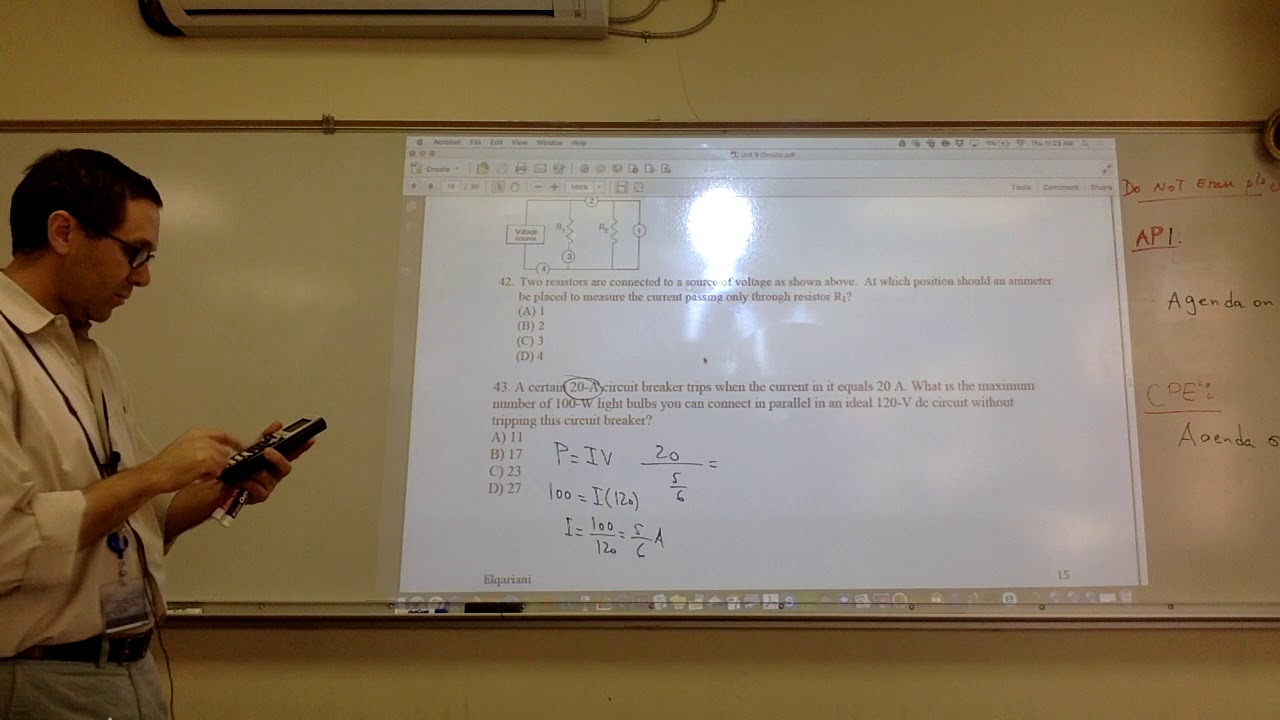 Acrobat File Edit View Window Help
Thu 11:22 AM
Unit 9 Circuits.pdf
Create
15 / 20
Tools Comment Share
2
Voltage
source
R1
R2
1
3
4
42. Two resistors are connected to a source of voltage as shown above. At which position should an ammeter
be placed to measure the current passing only through resistor R1?
(A) 1
(B) 2
(C) 3
(D) 4
43. A certain 20-A circuit breaker trips when the current in it equals 20 A. What is the maximum
number of 100-W light bulbs you can connect in parallel in an ideal 120-V dc circuit without
tripping this circuit breaker?
A) 11
B) 17
C) 23
D) 27
P = IV
100 = I(120)
I = 100/120 = 5/6 A
20 / 5/6 =
Elqariani
15
Do NOT Erase
AP1:
Agenda on
Agenda